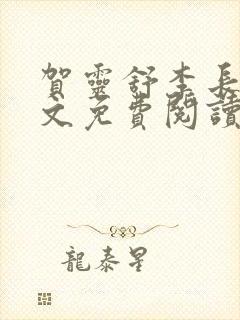 賀靈舒李長
文免費閱讀
龍泰星